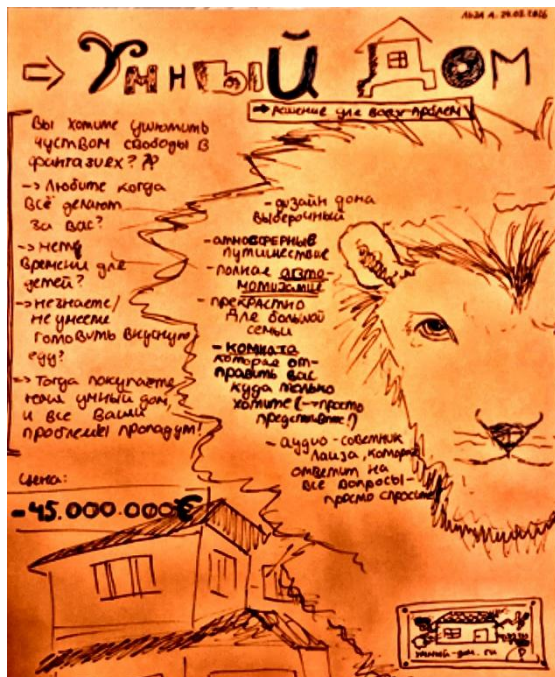 Лиза А. 24.02.2026
→ Умный Дом
→ решение для всех проблем
Вы хотите
чуством свободы в
фантазиях?
→ Любите когда
всё делают
за вас?
→ нету
времени для
детей?
→ незнаете/
не умеете
готовить вкусную
еду?
→ Тогда покупаете
наш умный дом
и все ваши
проблемы пропадут!
Цена:
- 45.000.000€
- дизайн дома
выберочный
- атмосферные
путишествие
- полная авто-
мотизация
- прекрастно
для большой
семьи
- комната
которая от-
править вас
куда только
хотите (→ просто
представте!)
- аудио-советник
Лаиза, которая
ответит на
все вопросы -
просто спросите
умный-дом.ru